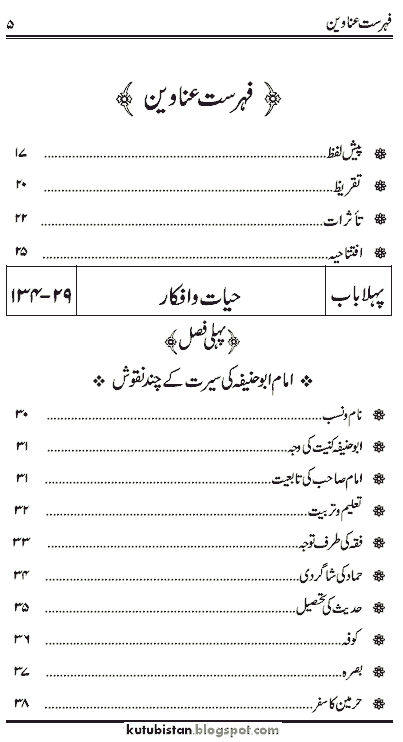 فہرست عناوین ۵
﴿ فہرست عناوین ﴾
پیش لفظ ........ ۱۷
تقریظ ........ ۲۰
تأثرات ........ ۲۲
افتتاحیہ ........ ۲۵
پہلا باب حیات و افکار ۲۹-۱۳۴
﴿پہلی فصل﴾
امام ابو حنیفہ کی سیرت کے چند نقوش
نام و نسب ........ ۳۰
ابو حنیفہ کنیت کی وجہ ........ ۳۱
امام صاحب کی تابعیت ........ ۳۱
تعلیم و تربیت ........ ۳۲
فقہ کی طرف توجہ ........ ۳۳
حماد کی شاگردی ........ ۳۴
حدیث کی تحصیل ........ ۳۵
کوفہ ........ ۳۶
بصرہ ........ ۳۷
حرمین کا سفر ........ ۳۸
kutubistan.blogspot.com